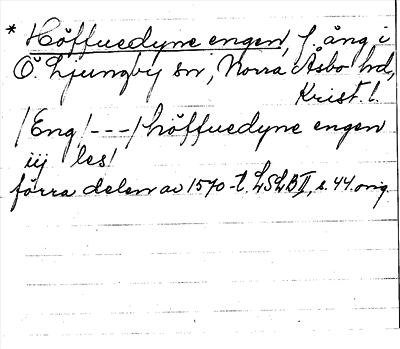 * Höffuedyne engen, f. äng i
Ö. Ljungby sn, Norra Åsbo hd,
Krist. l.
/Eng/ - - - / höffuedyne engen
iij les/
förra delen av 1570-t. LSLBII, s. 44. orig.